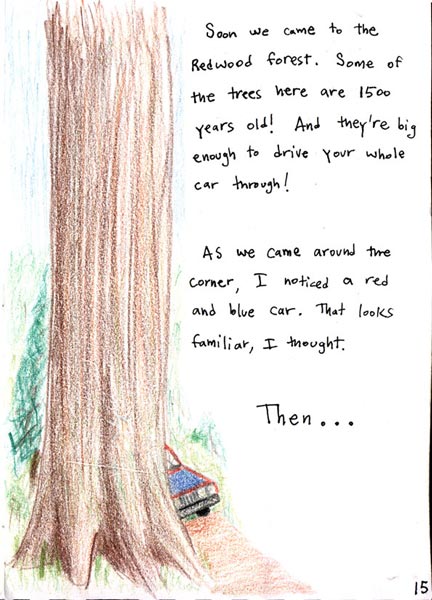 Soon we came to the
Redwood forest. Some of
the trees here are 1500
years old! And they're big
enough to drive your whole
car through!
As we came around the
corner, I noticed a red
and blue car. That looks
familiar, I thought.
Then...
15